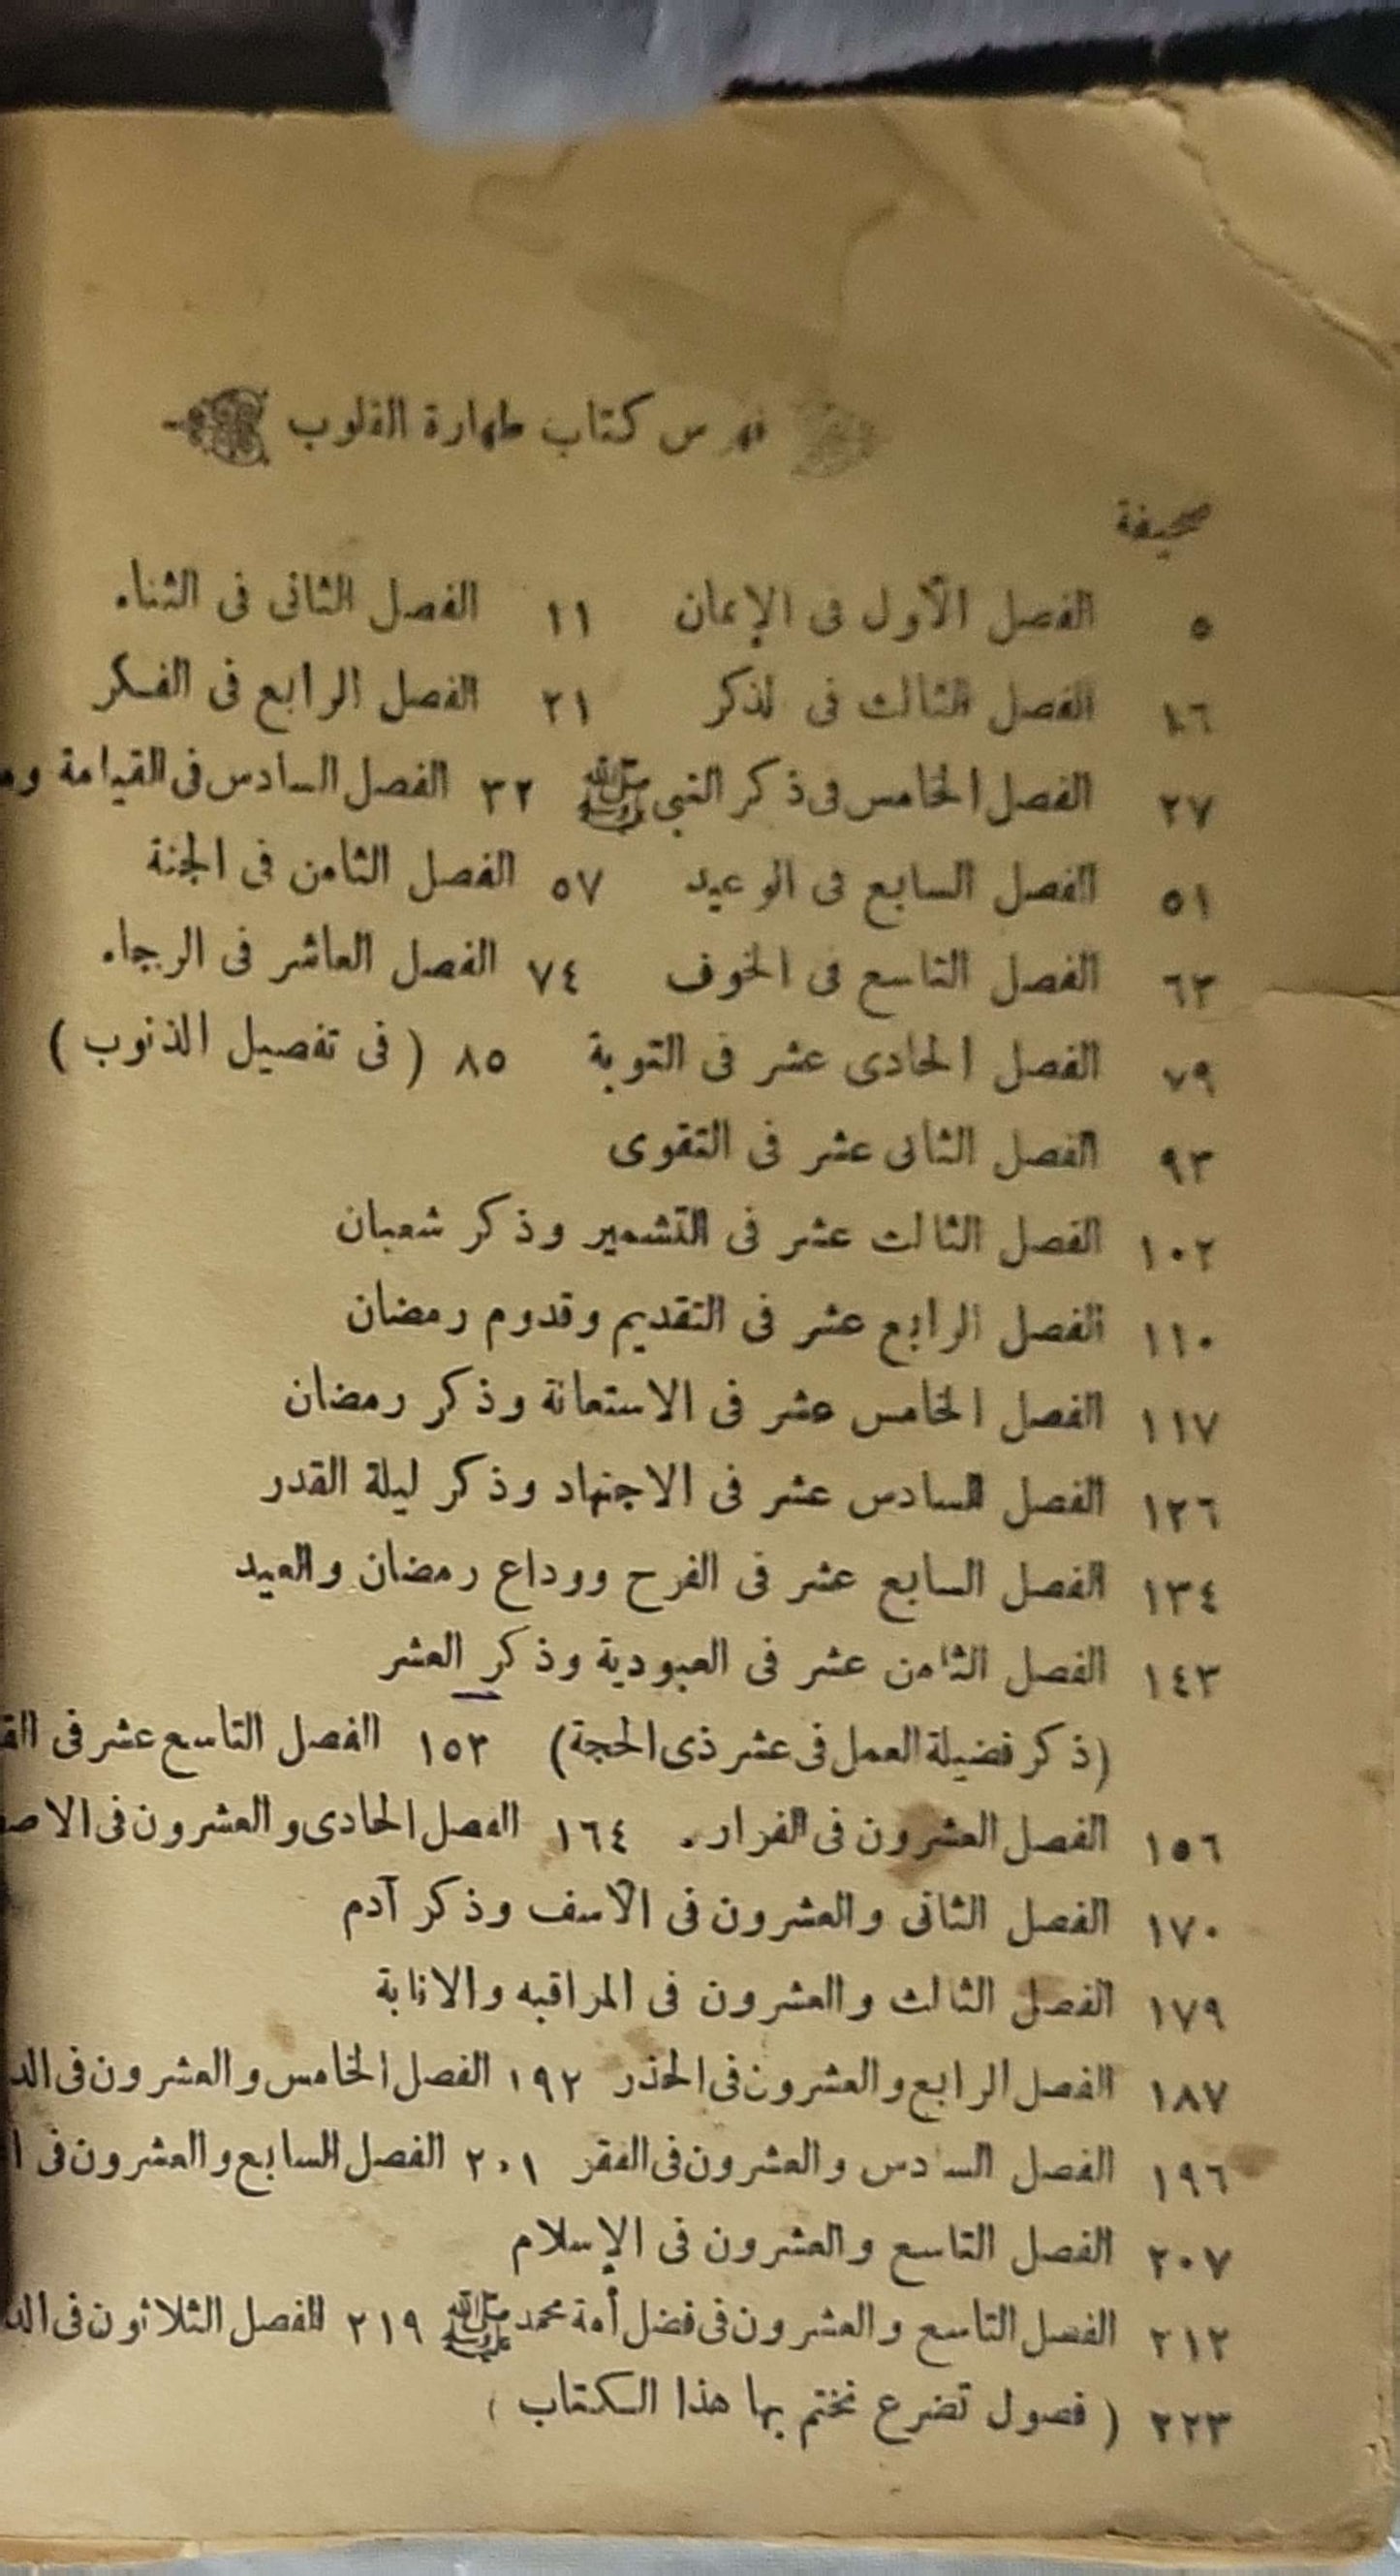 فهرس كتاب طهارة القلوب
صحيفة
٥ الفصل الأول فى الإيمان ١١ الفصل الثانى فى الثناء
١٦ الفصل الثالث فى لذكر ٢١ الفصل الرابع فى الفكر
٢٧ الفصل الخامس فى ذكر النبى ﷺ ٣٢ الفصل السادس فى القيامة
٥١ الفصل السابع فى الوعيد ٥٧ الفصل الثامن فى الجنة
٦٣ الفصل التاسع فى الخوف ٧٤ الفصل العاشر فى الرجاء
٧٩ الفصل الحادى عشر فى التوبة ٨٥ ( فى تفصيل الذنوب )
٩٣ الفصل الثانى عشر فى التقوى
١٠٢ الفصل الثالث عشر فى التشمير وذكر شعبان
١١٠ الفصل الرابع عشر فى التقديم وقدوم رمضان
١١٧ الفصل الخامس عشر فى الاستعانة وذكر رمضان
١٢٦ الفصل السادس عشر فى الاجتهاد وذكر ليلة القدر
١٣٤ الفصل السابع عشر فى الفرح ووداع رمضان والعيد
١٤٣ الفصل الثامن عشر فى العبودية وذكر العشر
(ذكر فضيلة العمل فى عشر ذى الحجة) ١٥٣ الفصل التاسع عشر فى
١٥٦ الفصل العشرون فى الفرار. ١٦٤ الفصل الحادى والعشرون فى
١٧٠ الفصل الثانى والعشرون فى الأسف وذكر آدم
١٧٩ الفصل الثالث والعشرون فى المراقبه والانابة
١٨٧ الفصل الرابع والعشرون فى الحذر ١٩٢ الفصل الخامس والعشرون فى
١٩٦ الفصل السادس والعشرون فى الفقر ٢٠١ الفصل السابع والعشرون فى
٢٠٧ الفصل التاسع والعشرون فى الإسلام
٢١٢ الفصل التاسع والعشرون فى فضل أمة محمد ﷺ ٢١٩ الفصل الثلاثون فى
٢٢٣ ( فصول تضرع نختم بها هذا الكتاب )